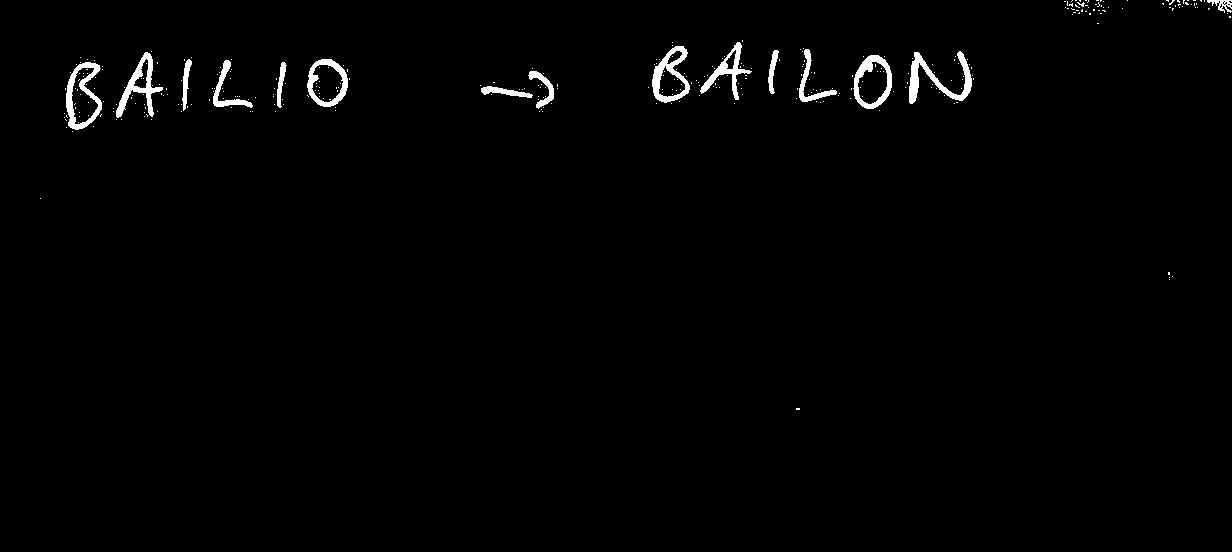 BAILIO → BAILON